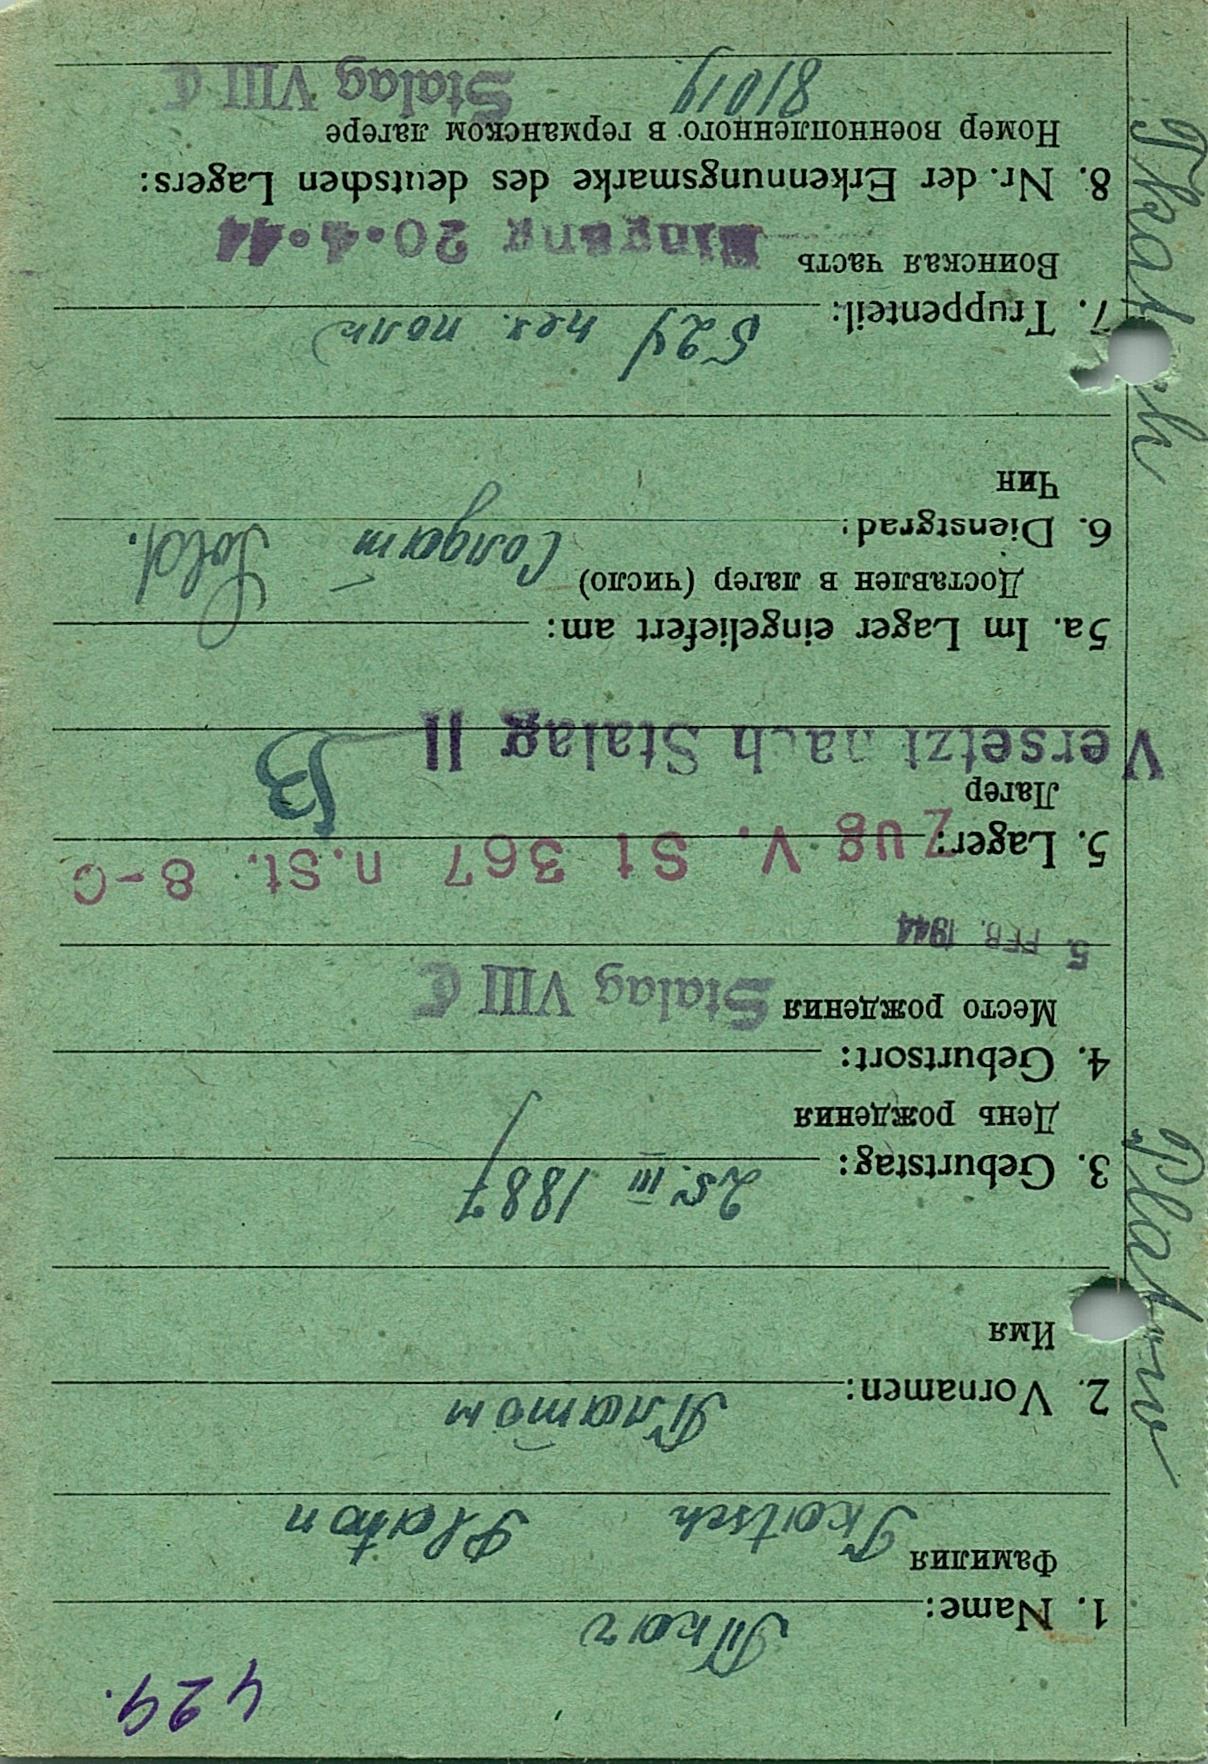 429.
1. Name: Ткач
Фамилия
Tkatsch Platon
2. Vornamen: Платон
Имя
3. Geburtstag: 25. III 1887
День рождения
4. Geburtsort:
Место рождения Stalag VIII C
5. FEB. 1944
5. Lager: Zug V. St 367 n.St. 8-C
Лагер
Versetzt nach Stalag II B
5a. Im Lager eingeliefert am:
Доставлен в лагер (число)
6. Dienstgrad: Солдат – Sold.
Чин
7. Truppenteil: 529 пех. полк
Воинская часть Eingang 20.4.44
8. Nr. der Erkennungsmarke des deutschen Lagers:
Номер военнопленного в германском лагере
81019. Stalag VIII C
Tkatch Platon